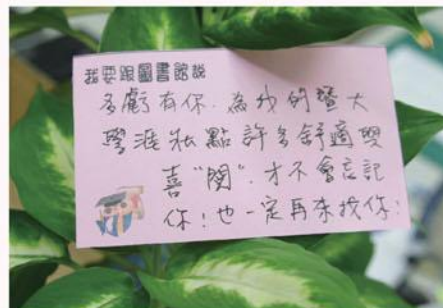 我要跟圖書館說
多虧有你.為我的暨大
學涯妝點許多舒適與
喜"閱".才不會忘記
你!也一定再來找你!